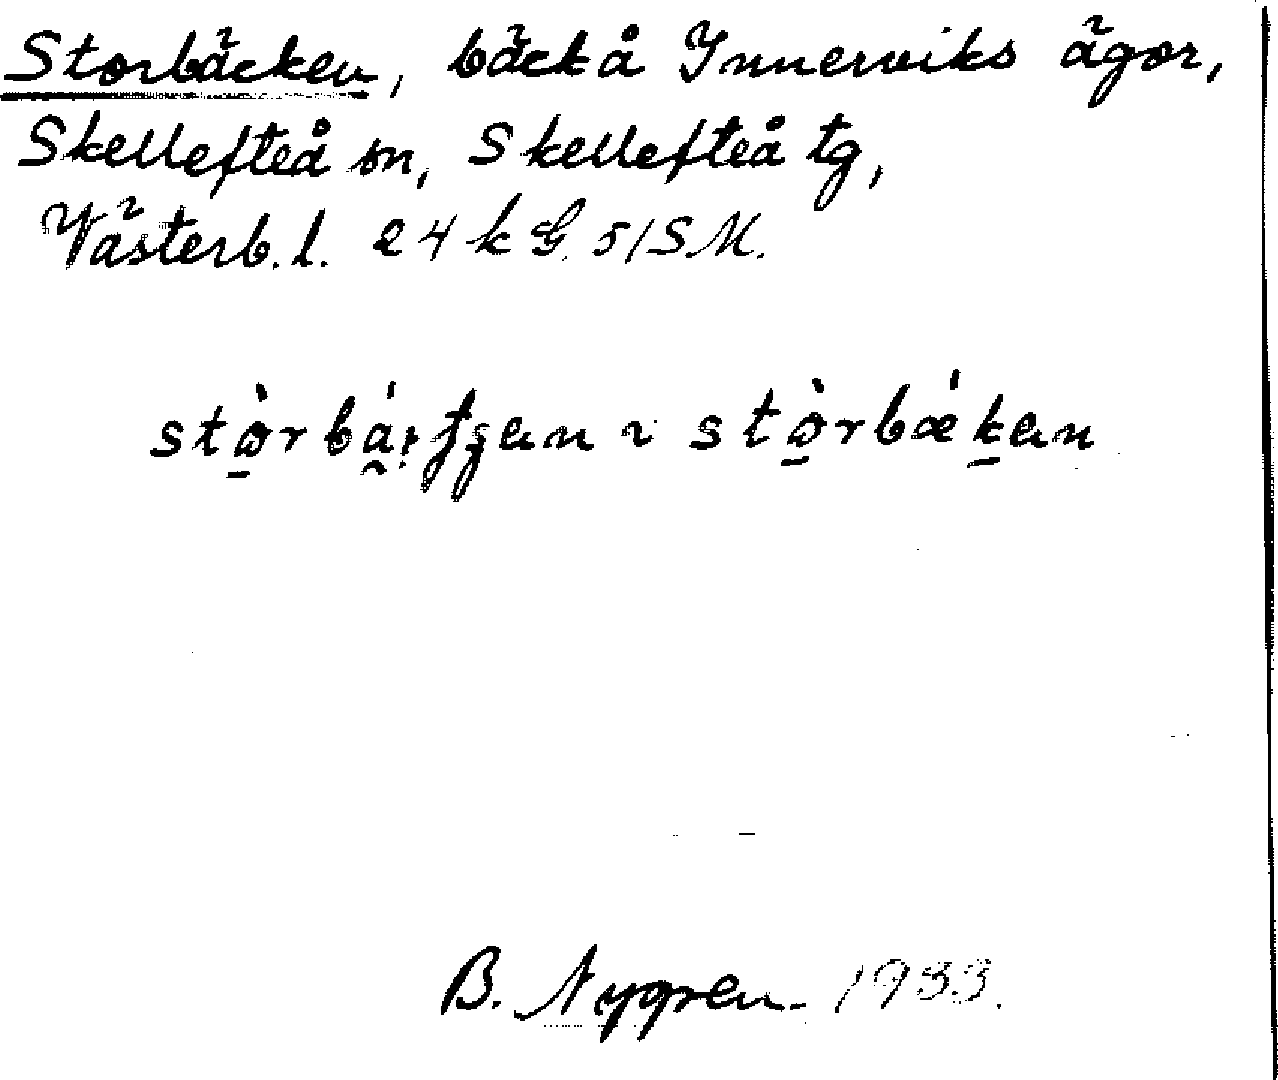 Storbäcken, bäck å Innerviks ägor,
Skellefteå sn, Skellefteå tg,
Västerb. l. 24 k G. 51 SM.
stòrbákan
B. Nygren. 1933.